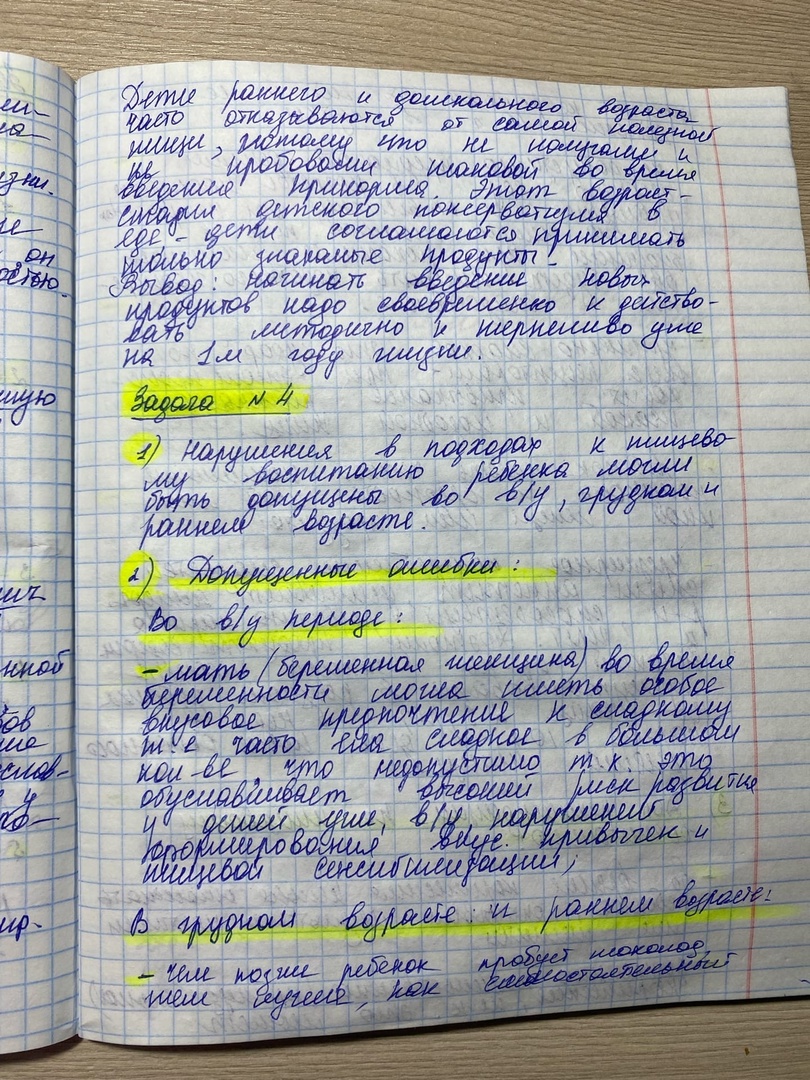 Дети раннего и дошкольного возраста
часто отказываются от самой полезной
пищи, потому что не получали и
не пробовали таковой во время
введения прикорма. Этот возраст -
стадия детского консерватизма в
еде - дети соглашаются принимать
только знакомые продукты.
Вывод: начинать введение новых
продуктов надо своевременно и действо-
вать методично и терпеливо уже
на 1м году жизни.
Задача №4
1) Нарушения в подходах к пищево-
му воспитанию ребёнка могли
быть допущены во в/у, грудном и
раннем возрасте.
2) Допущенные ошибки:
Во в/у периоде:
- мать (беременная женщина) во время
беременности могла иметь особое
вкусовое предпочтение к сладкому
т.е часто ела сладкое в большом
кол-ве, что недопустимо т.к. это
обуславливает высокий риск развития
у детей уже, в/у нарушений
формирования вкус. привычек и
пищевой сенсибилизации;
В грудном возрасте: и раннем возрасте:
- чем позже ребёнок пробует шоколад,
тем лучше, как самостоятельный
ми-
на
зни.
не
он
остью.
ную
ич
нной
ов
слав-
и
ир-